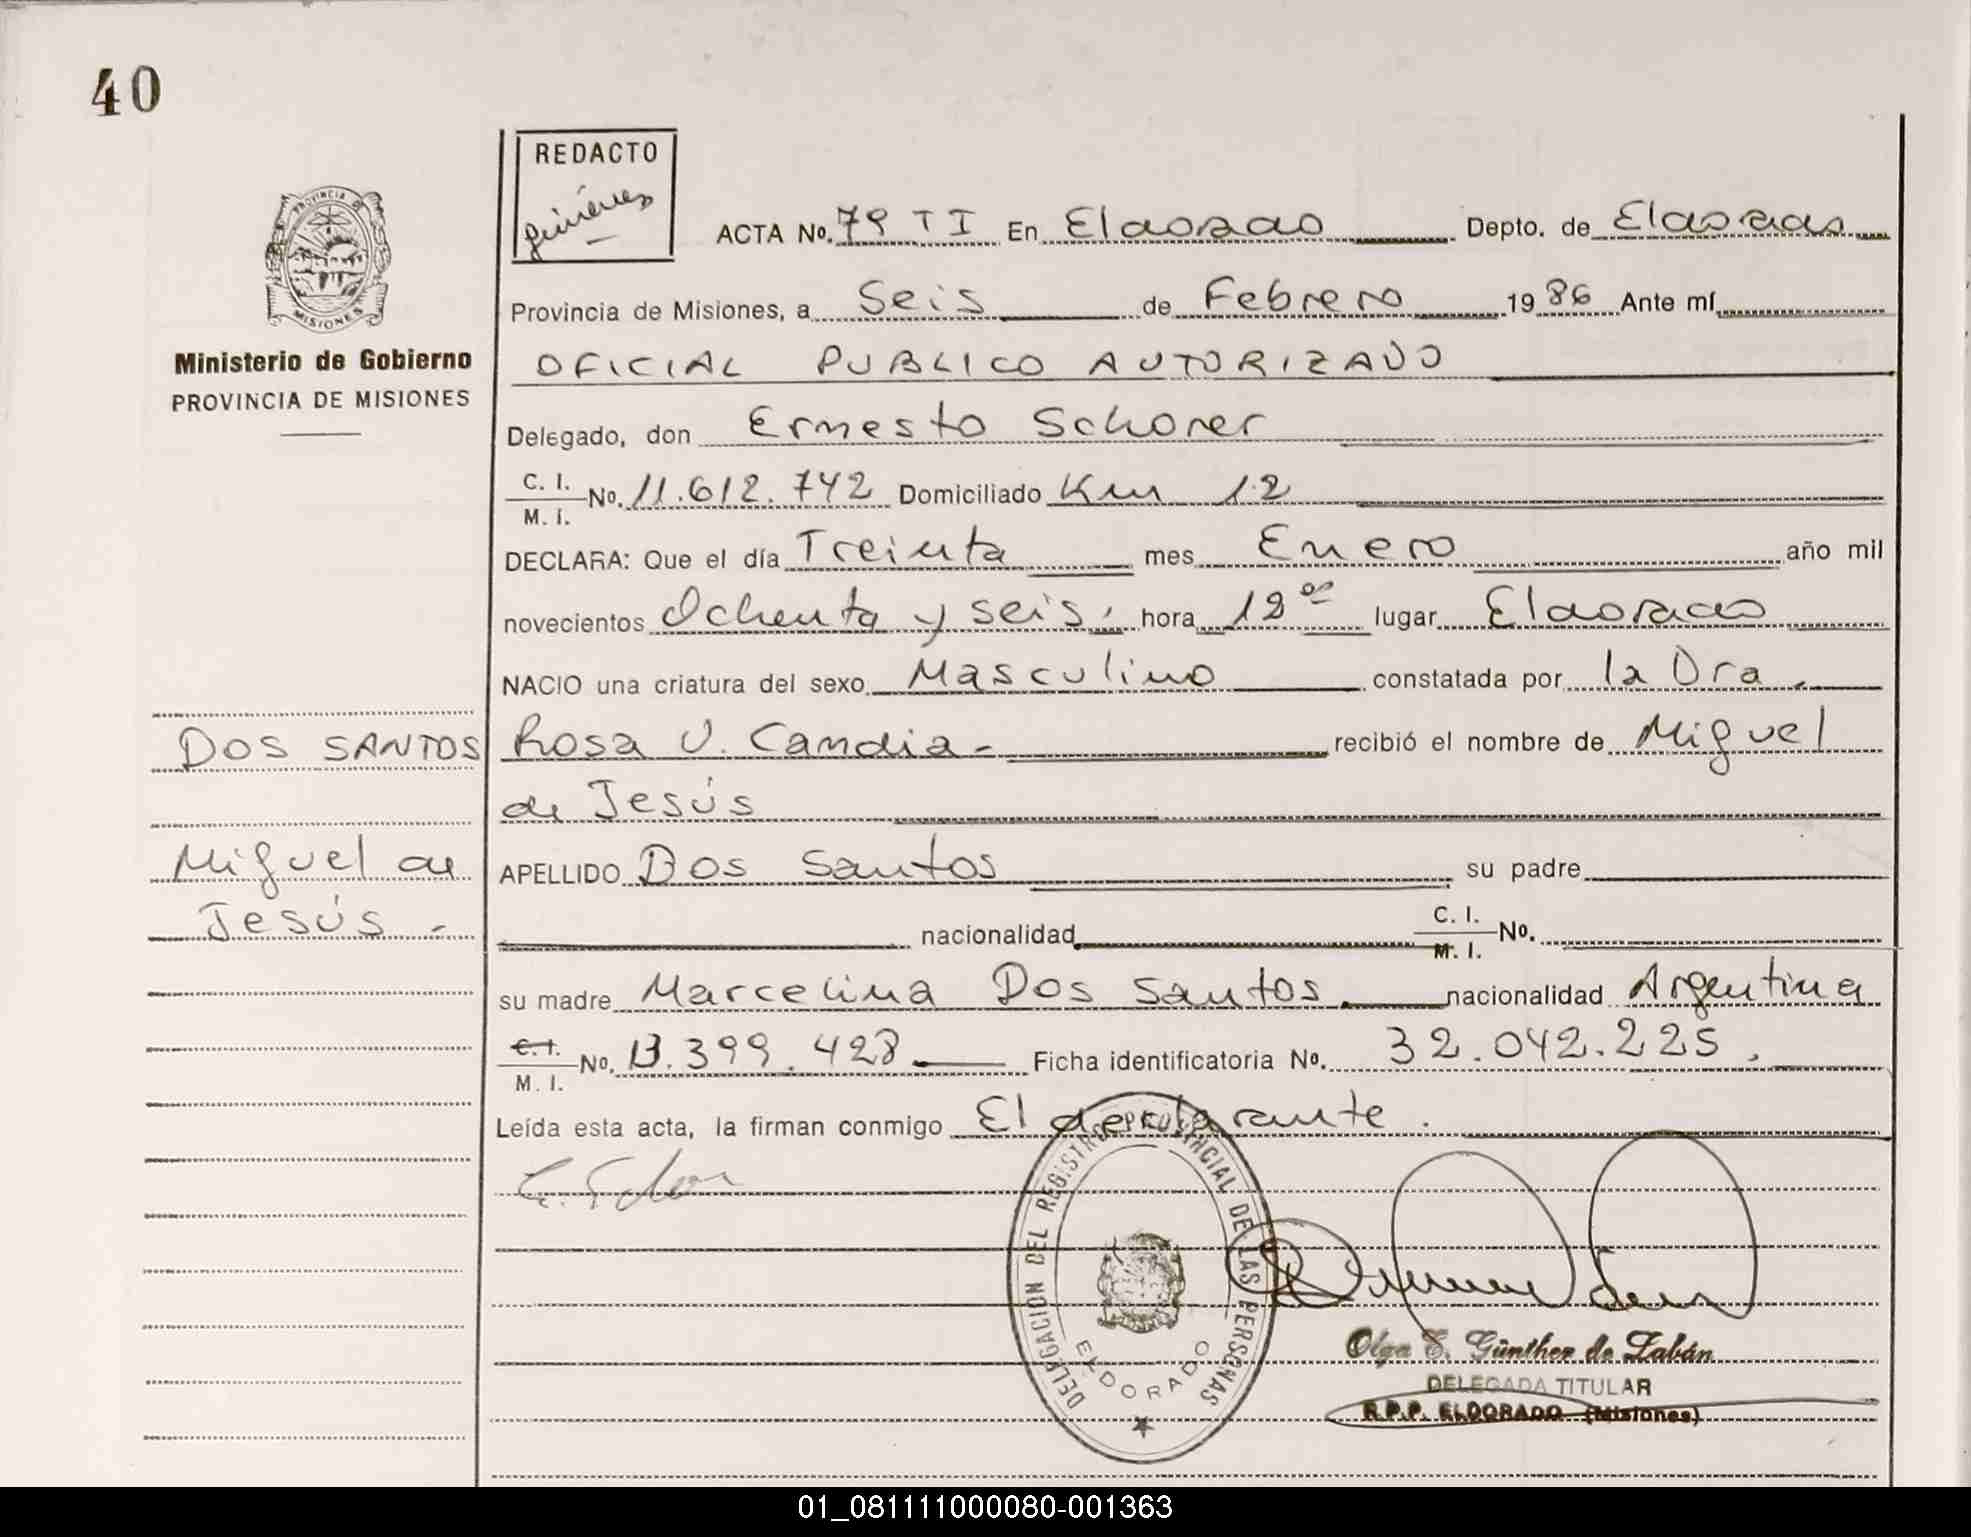 40
REDACTO
giménez
PROVINCIA DE
MISIONES
ACTA No. 79 T I En Eldorado Depto. de Eldorado
Provincia de Misiones, a Seis de Febrero 1986 Ante mí
Ministerio de Gobierno
PROVINCIA DE MISIONES
OFICIAL PUBLICO AUTORIZADO
Delegado, don Ernesto Schorer
C. I. / M. I. No. 11.612.742 Domiciliado Km 12
DECLARA: Que el día Treinta mes Enero año mil
novecientos Ochenta y seis. hora 12 00 lugar Eldorado
NACIO una criatura del sexo Masculino constatada por la Dra.
Rosa V. Candia - recibió el nombre de Miguel
de Jesús
APELLIDO Dos Santos su padre
nacionalidad C. I. / M. I. No.
su madre Marcelina Dos Santos nacionalidad Argentina
C. I. / M. I. No. 13.399.428 Ficha identificatoria No. 32.042.225.
Leída esta acta, la firman conmigo El declarante.
DOS SANTOS
Miguel de
Jesús -
DELEGACION DEL REGISTRO PROVINCIAL DE LAS PERSONAS
ELDORADO
Olga E. Günther de Zabán
DELEGADA TITULAR
R.P.P. ELDORADO (Misiones)
01_081111000080-001363